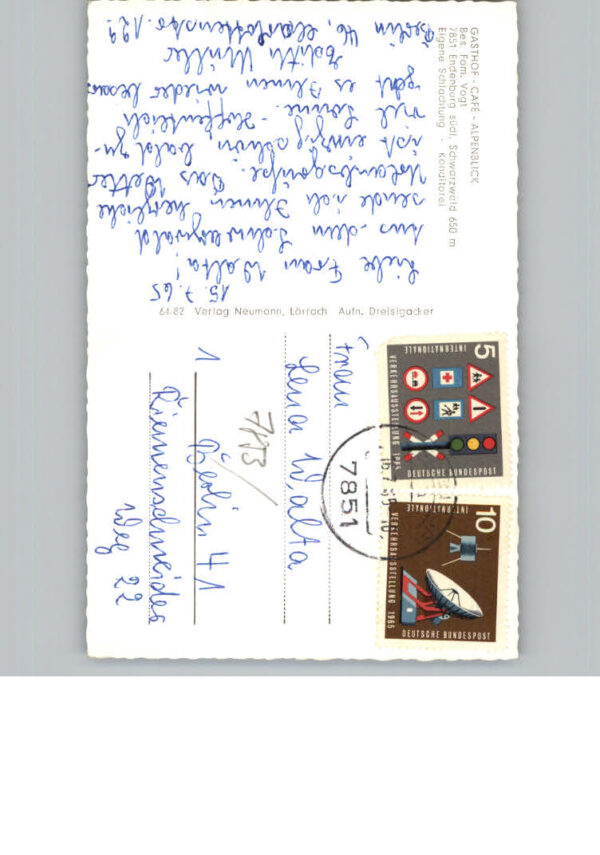 GASTHOF - CAFÉ - ALPENBLICK
Bes. Fam. Vogt
7851 Endenburg südl. Schwarzwald 650 m
Eigene Schlachtung - Konditorei
15.7.65
Liebe Frau Walta!
Aus dem Schwarzwald
sende ich Ihnen herzliche
Urlaubsgrüße. Das Wetter
ist einzig schön bald zu-
viel Sonne. - Hoffentlich
geht es Ihnen wieder besser
Edith Müller
Berlin 46, Charlottenstr. 129
6482 Verlag Neumann, Lörrach Aufn. Dreisigacker
Frau
Lena Walta
1 Berlin 41
Riemenschneider
Weg 22
7153
7851
5
INTERNATIONALE
VERKEHRSAUSSTELLUNG 1965
DEUTSCHE BUNDESPOST
10
INTERNATIONALE
VERKEHRSAUSSTELLUNG 1965
DEUTSCHE BUNDESPOST